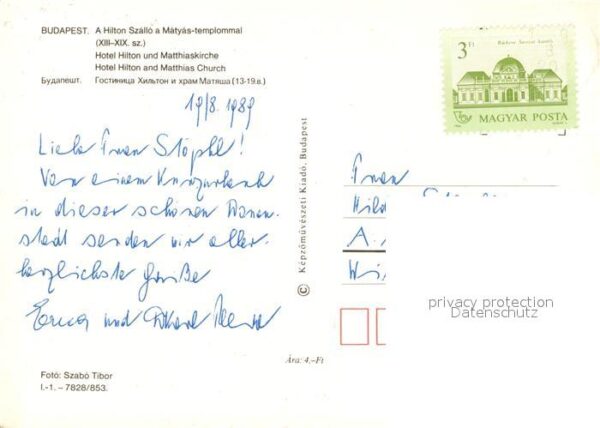 BUDAPEST. A Hilton Szálló a Mátyás-templommal
(XIII–XIX. sz.)
Hotel Hilton und Matthiaskirche
Hotel Hilton and Matthias Church
Будапешт. Гостиница Хильтон и храм Матяша (13-19.в.)
19/8. 1989
Liebe Frau Stöphl!
Von einem Kurzurlaub
in dieser schönen Donau-
stadt senden wir aller-
herzlichste Grüße
Erica und
Foto: Szabó Tibor
I.-1. – 7828/853.
© Képzőművészeti Kiadó, Budapest
Ára: 4.-Ft
3 Ft
MAGYAR POSTA
Frau
Hild
A.
Wi
privacy protection
Datenschutz